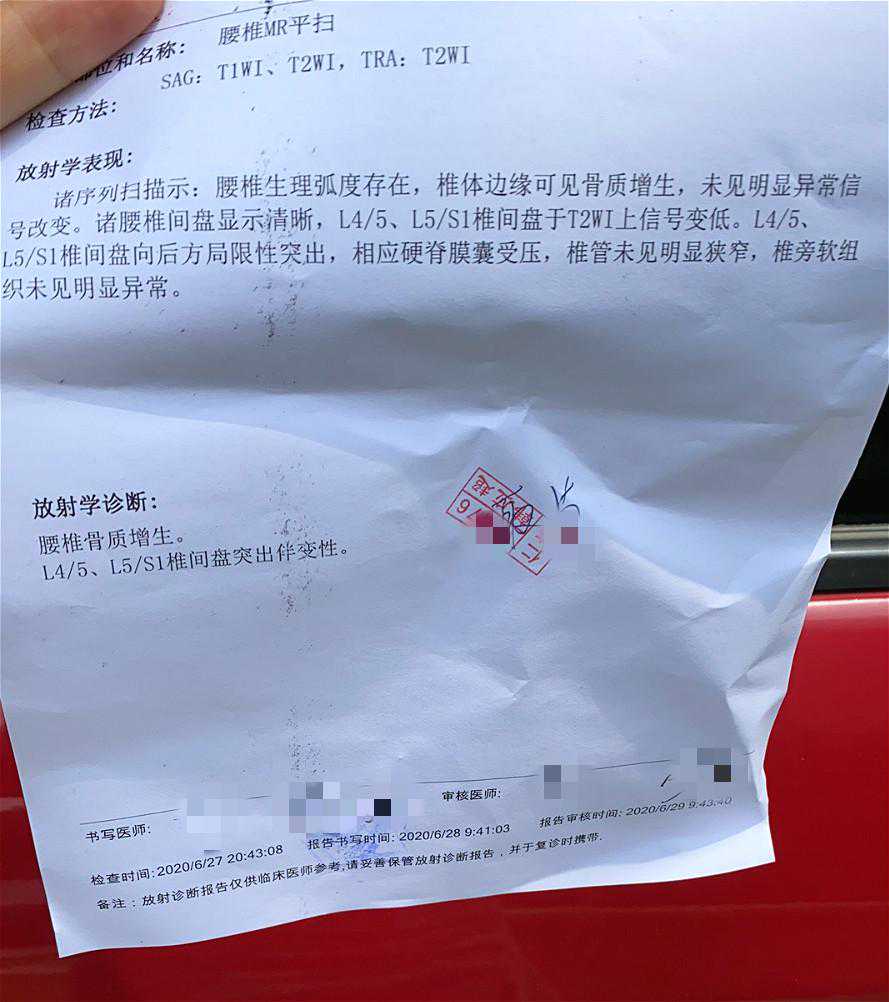 部位和名称： 腰椎MR平扫
检查方法： SAG: T1WI、T2WI, TRA: T2WI
放射学表现：
诸序列扫描示：腰椎生理弧度存在，椎体边缘可见骨质增生，未见明显异常信
号改变。诸腰椎间盘显示清晰，L4/5、L5/S1椎间盘于T2WI上信号变低。L4/5、
L5/S1椎间盘向后方局限性突出，相应硬脊膜囊受压，椎管未见明显狭窄，椎旁软组
织未见明显异常。
放射学诊断：
腰椎骨质增生。
L4/5、L5/S1椎间盘突出伴变性。
书写医师: 审核医师:
检查时间: 2020/6/27 20:43:08 报告书写时间: 2020/6/28 9:41:03 报告审核时间: 2020/6/29 9:43:40
备注：放射诊断报告仅供临床医师参考,请妥善保管放射诊断报告，并于复诊时携带.